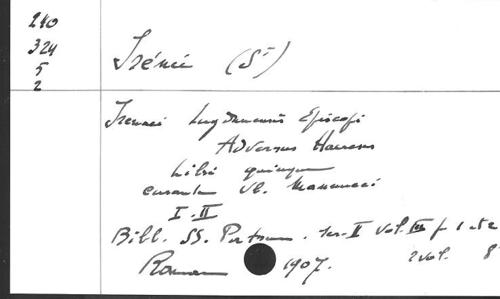 240
324
5
2
Irénée (St)
Irenaei Lugdunensis Episcopi
Adversus Haereses
Libri quinque
curante Ub. Mannucci
I-II
Bill. SS. Patrum. ser. II vol. III
Romae 1907. 2 vol. 8